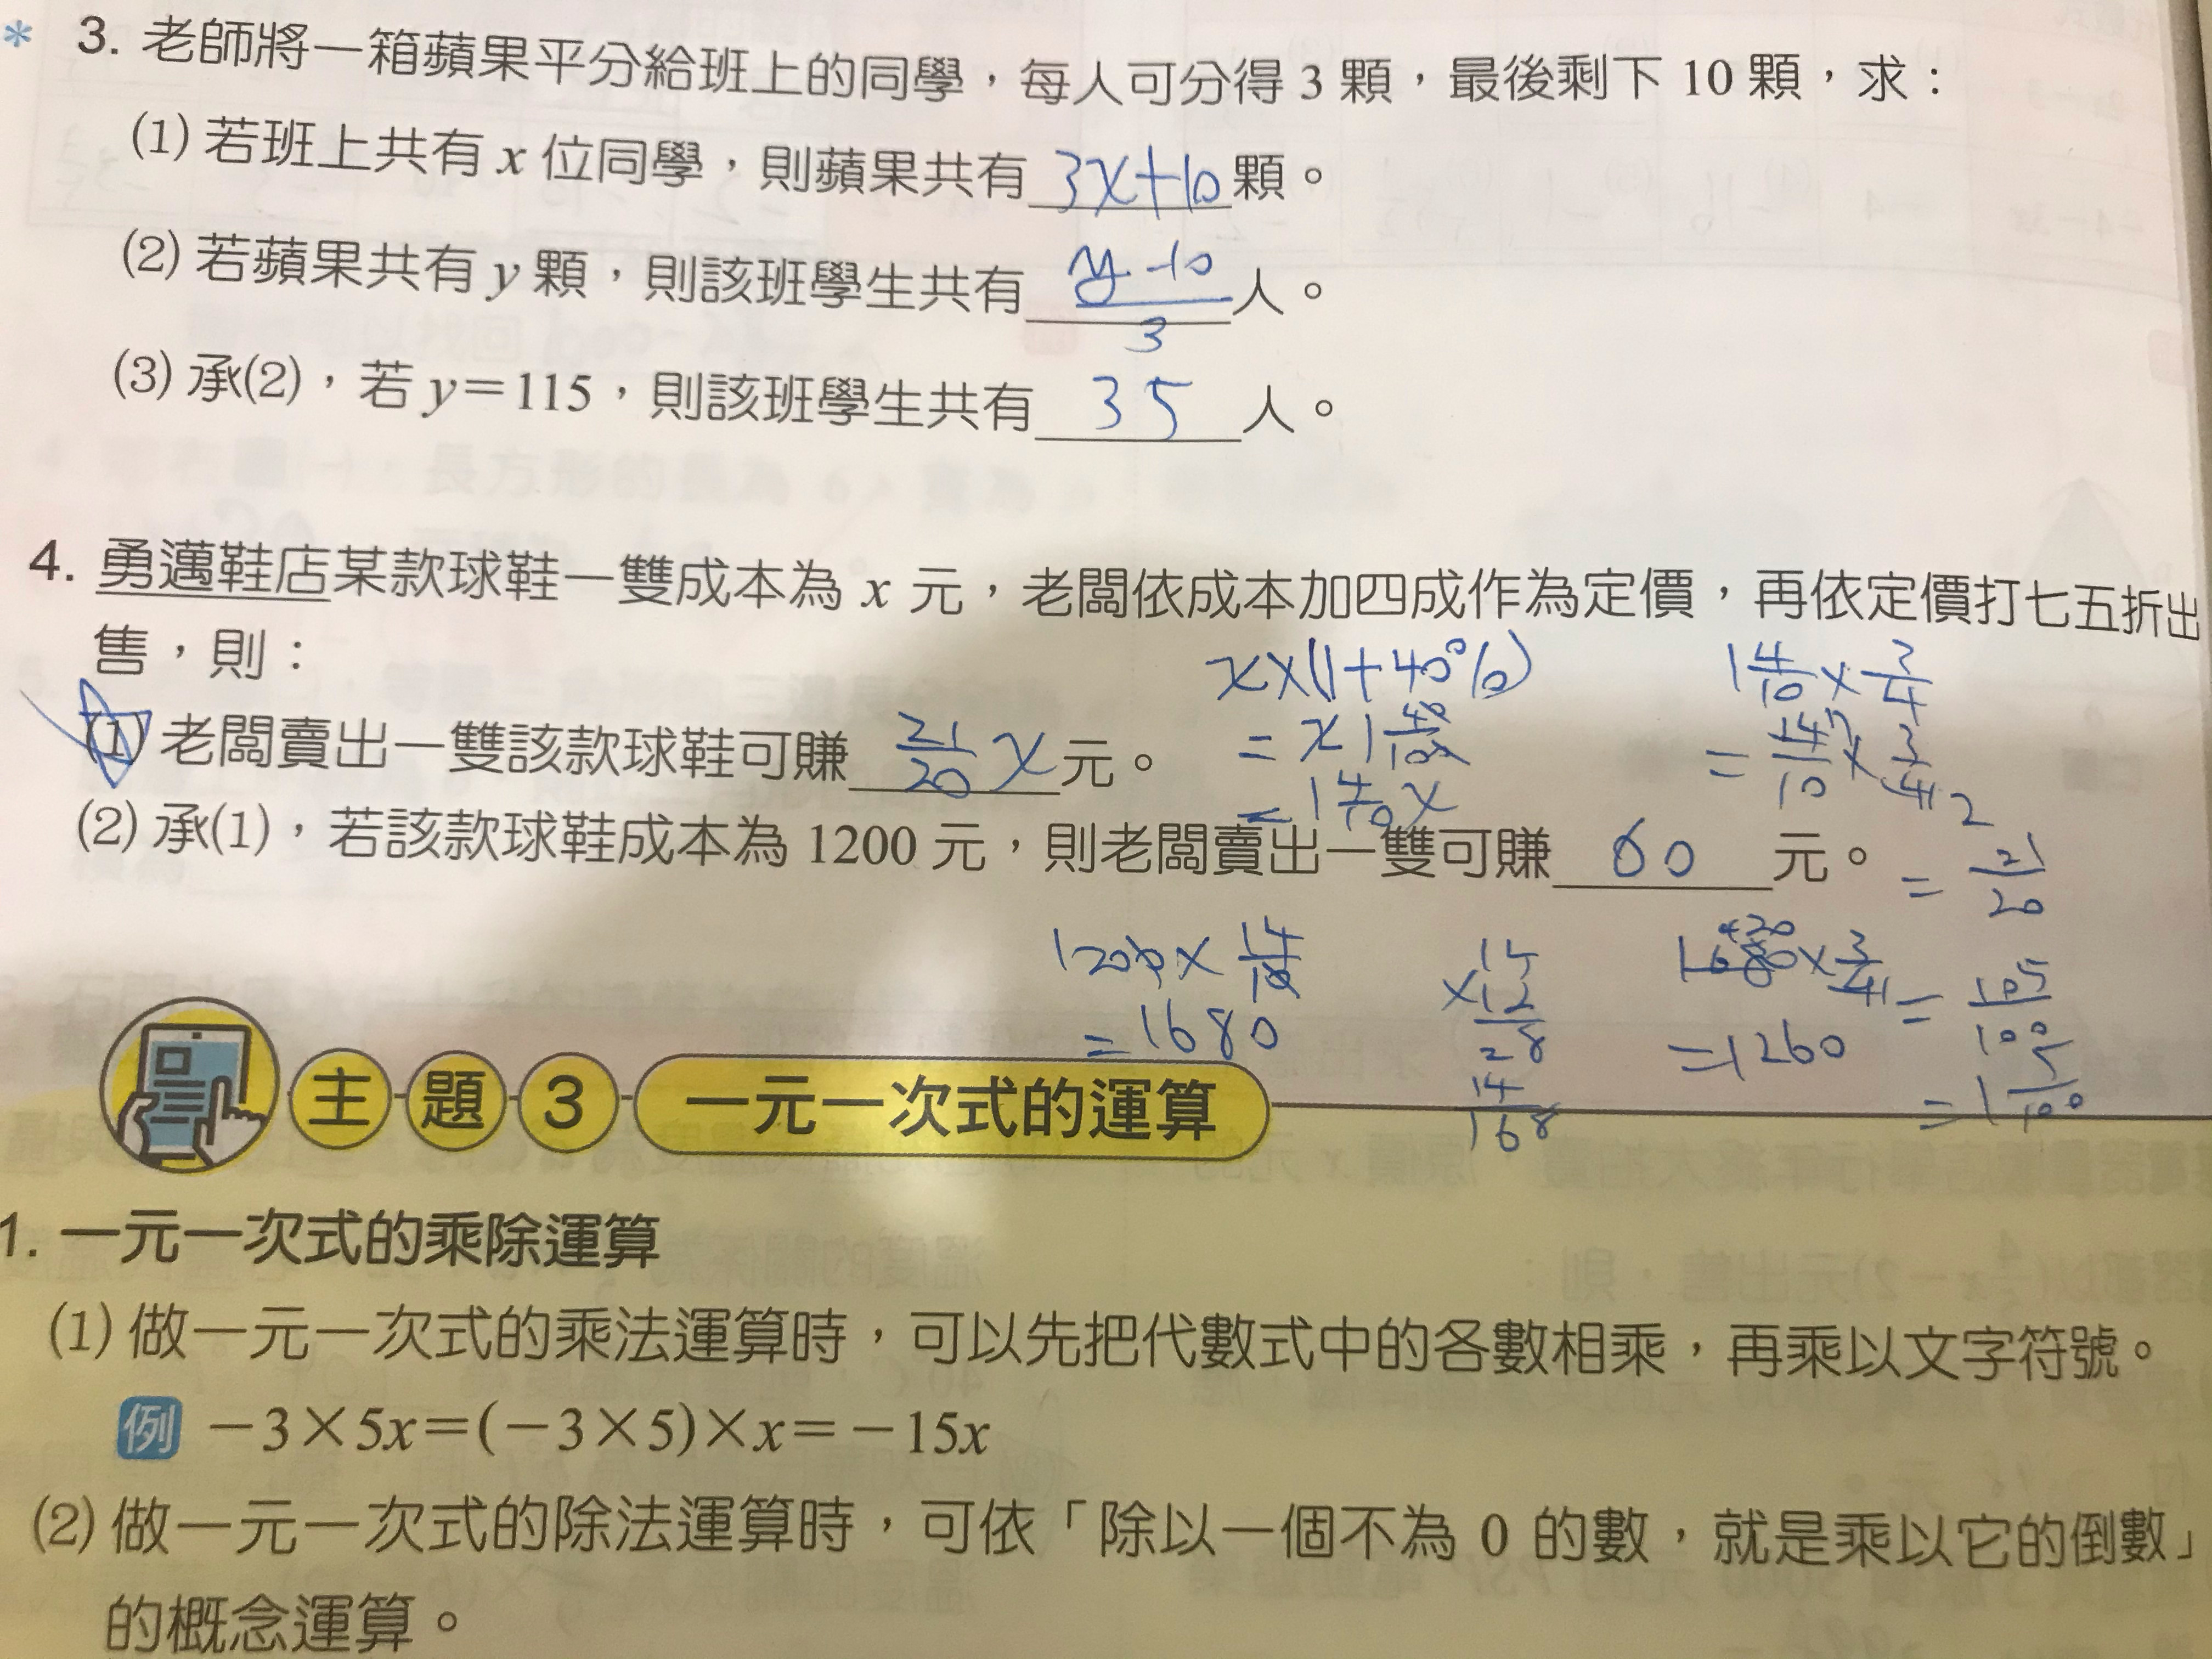 * 3. 老師將一箱蘋果平分給班上的同學，每人可分得 3 顆，最後剩下 10 顆，求：
(1) 若班上共有 x 位同學，則蘋果共有 3x+10 顆。
(2) 若蘋果共有 y 顆，則該班學生共有 (y-10)/3 人。
(3) 承(2)，若 y＝115，則該班學生共有 35 人。
4. 勇邁鞋店某款球鞋一雙成本為 x 元，老闆依成本加四成作為定價，再依定價打七五折出
售，則：
x×(1+40%)
1 4/10 × 3/4
(1) 老闆賣出一雙該款球鞋可賺 21/20 x 元。
= x 1 40/100
= 14/10 × 3/4
= 1 4/10 x
(2) 承(1)，若該款球鞋成本為 1200 元，則老闆賣出一雙可賺 60 元。
= 21/20
1200 × 14/10
= 1680
14
×12
28
14
168
1680 × 3/4
= 1260
= 105/100
= 1 5/100
主題3 一元一次式的運算
1. 一元一次式的乘除運算
(1) 做一元一次式的乘法運算時，可以先把代數式中的各數相乘，再乘以文字符號。
例 －3×5x＝(－3×5)×x＝－15x
(2) 做一元一次式的除法運算時，可依「除以一個不為 0 的數，就是乘以它的倒數」
的概念運算。